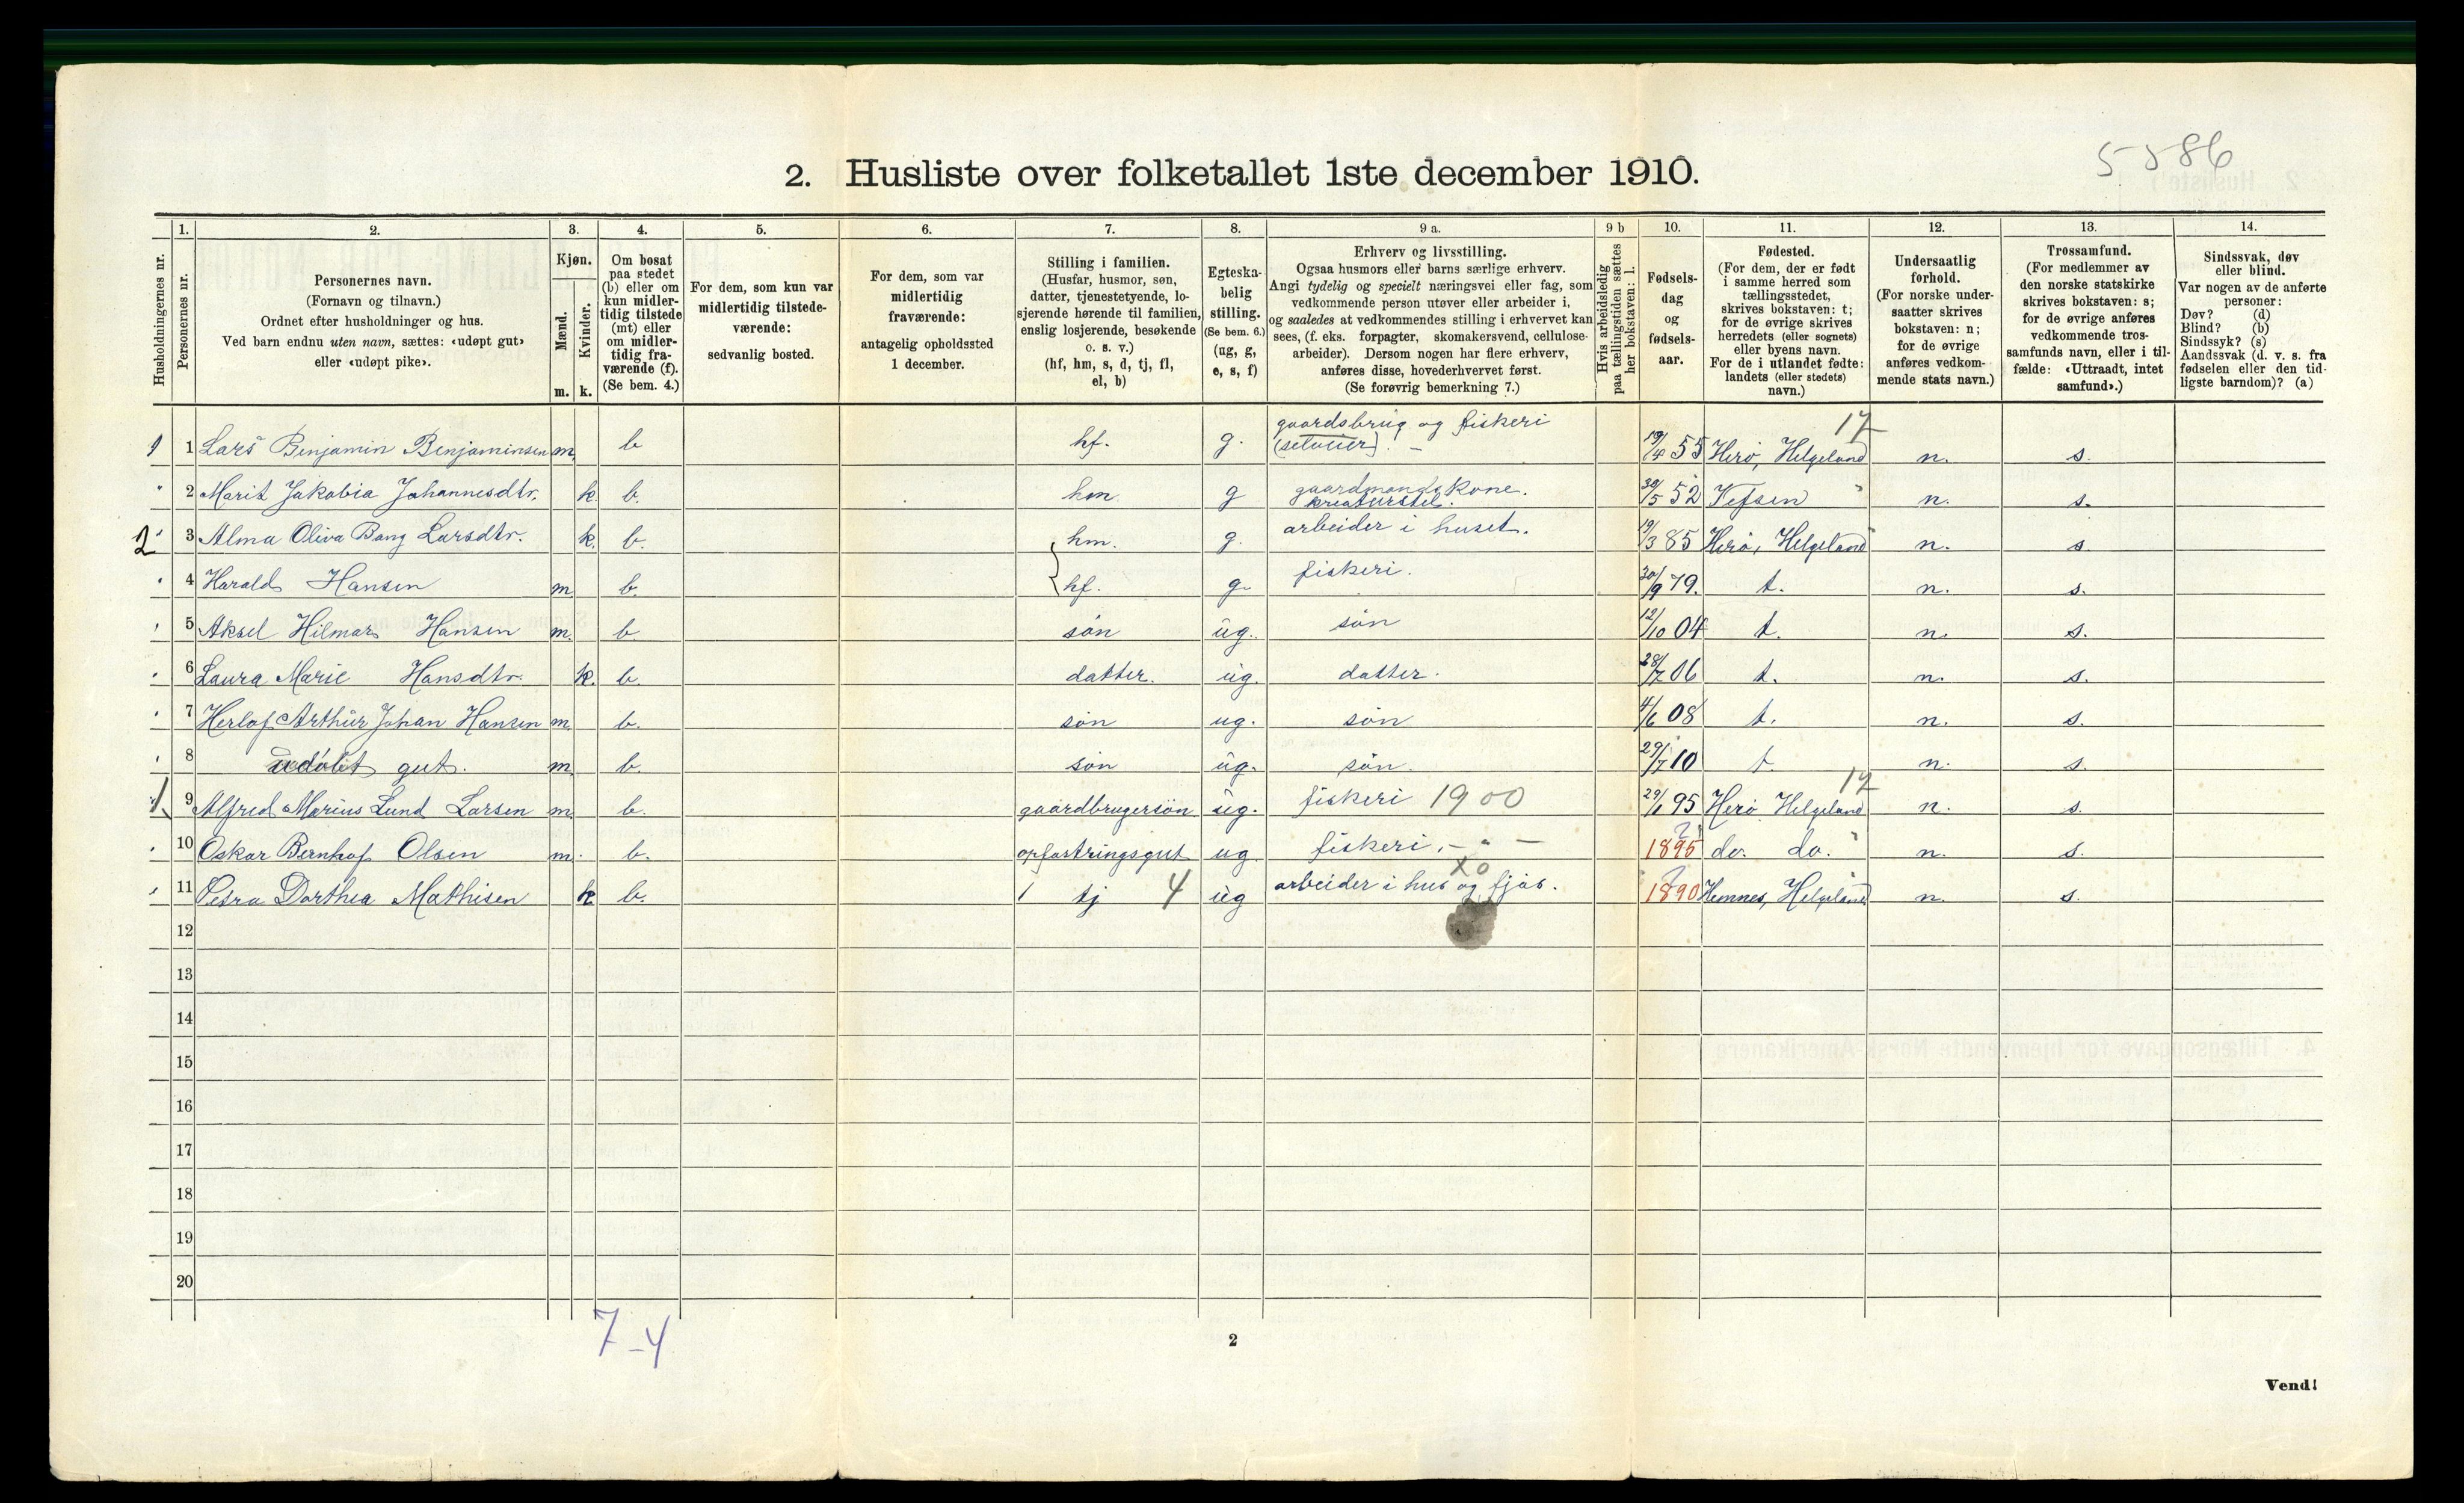 5586
2. Husliste over folketallet 1ste december 1910.
Husholdningernes nr.
1.
Personernes nr.
2.
Personernes navn.
(Fornavn og tilnavn.)
Ordnet efter husholdninger og hus.
Ved barn endnu uten navn, sættes: «udøpt gut»
eller «udøpt pike».
3.
Kjøn.
Mænd.
Kvinder.
m. k.
4.
Om bosat
paa stedet
(b) eller om
kun midler-
tidig tilstede
(mt) eller
om midler-
tidig fra-
værende (f).
(Se bem. 4.)
5.
For dem, som kun var
midlertidig tilstede-
værende:
sedvanlig bosted.
6.
For dem, som var
midlertidig
fraværende:
antagelig opholdssted
1 december.
7.
Stilling i familien.
(Husfar, husmor, søn,
datter, tjenestetyende, lo-
sjerende hørende til familien,
enslig losjerende, besøkende
o. s. v.)
(hf, hm, s, d, tj, fl,
el, b)
8.
Egteska-
belig
stilling.
(Se bem. 6.)
(ug, g,
e, s, f)
9 a.
Erhverv og livsstilling.
Ogsaa husmors eller barns særlige erhverv.
Angi tydelig og specielt næringsvei eller fag, som
vedkommende person utøver eller arbeider i,
og saaledes at vedkommendes stilling i erhvervet kan
sees, (f. eks. forpagter, skomakersvend, cellulose-
arbeider). Dersom nogen har flere erhverv,
anføres disse, hovederhvervet først.
(Se forøvrig bemerkning 7.)
9 b
Hvis arbeidsledig
paa tællingstiden sættes
her bokstaven: l.
10.
Fødsels-
dag
og
fødsels-
aar.
11.
Fødested.
(For dem, der er født
i samme herred som
tællingsstedet,
skrives bokstaven: t;
for de øvrige skrives
herredets (eller sognets)
eller byens navn.
For de i utlandet fødte:
landets (eller stedets)
navn.)
12.
Undersaatlig
forhold.
(For norske under-
saatter skrives
bokstaven: n;
for de øvrige
anføres vedkom-
mende stats navn.)
13.
Trossamfund.
(For medlemmer av
den norske statskirke
skrives bokstaven: s;
for de øvrige anføres
vedkommende tros-
samfunds navn, eller i til-
fælde: «Uttraadt, intet
samfund».)
14.
Sindssvak, døv
eller blind.
Var nogen av de anførte
personer:
Døv? (d)
Blind? (b)
Sindssyk? (s)
Aandssvak (d. v. s. fra
fødselen eller den tid-
ligste barndom)? (a)
1 1 Lars Benjamin Benjaminsen m. b hf. g. gaardsbrug og fiskeri (selveier). 19/4 55 Herø, Helgeland 17 n. s.
2 Marit Jakobia Johannesdtr. k. b. hm. g gaardmands kone. kreaturstel. 30/5 52 Vefsen n. s.
2 3 Alma Oliva Bang Larsdtr. k. b. hm. g. arbeider i huset. 19/3 85 Herø, Helgeland n. s.
4 Harald Hansen m. b. hf. g. fiskeri. 30/9 79. t. n. s.
5 Aksel Hilmar Hansen m. b. søn ug. søn 12/10 04 t. n. s.
6 Laura Marie Hansdtr. k. b. datter. ug. datter. 28/7 06 t. n. s.
7 Herlof Arthur Johan Hansen m. b. søn ug. søn 4/6 08 t. n. s.
8 udøbt gut. m. b. søn ug. søn. 29/7 10 t. n. s.
1 9 Alfred Marius Lund Larsen m. b. gaardbrugersøn ug. fiskeri 1900 29/1 95 Herø Helgeland 17 n. s.
10 Oskar Bernhof Olsen m. b. opfostringsgut ug. fiskeri. - " - 1895 ? do. do. n. s.
11 Petra Dorthea Mathisen k b. 1 tj 4 ug arbeider i hus og fjøs. xo 1890 ? Hemnes, Helgeland n. s.
12
13
14
15
16
17
18
19
20
7-4
2
Vend!